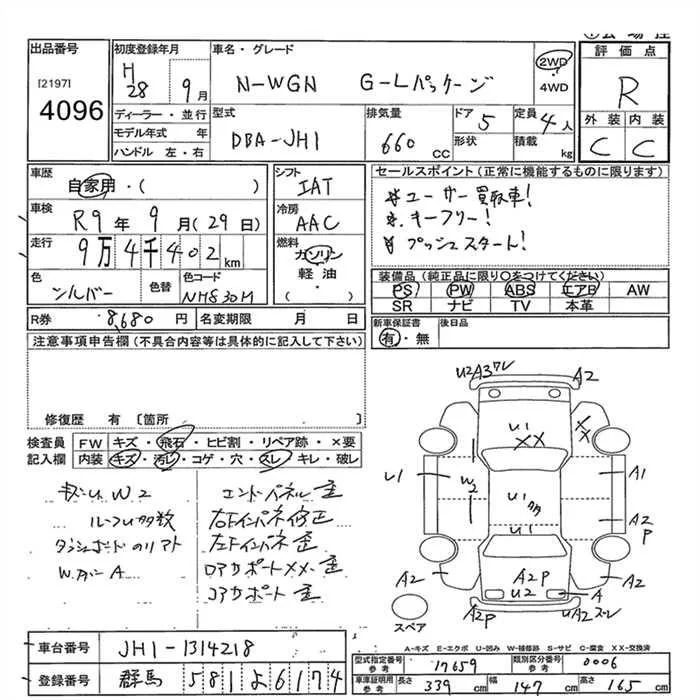 出品番号
[2197]
4096
初度登録年月
H
28 9月
ディーラー・並行
モデル年式 年
ハンドル 左・右
車名・グレード
N-WGN G-Lパッケージ
2WD
4WD
型式
DBA-JH1
排気量
660 CC
ドア 5
形状
定員 4人
積載 kg
評価点
R
外装 内装
C C
車歴
自家用・( )
車検 R9年 9月(29日)
走行 9万4千402km
色 シルバー
色替
色コード NH830M
シフト
IAT
冷房
AAC
燃料
ガソリン
軽油
( )
セールスポイント(正常に機能するものに限ります)
※ユーザー買取車!
※.キーフリー!
※プッシュスタート!
装備品(純正品に限り○をつけてください)
PS PW ABS エアB AW
SR ナビ TV 本革
R券 8,680円 名変期限 月 日
新車保証書 後日品
有・無
注意事項申告欄(不具合内容等は具体的に記入して下さい)
修復歴 有 [箇所 ]
検査員 FW キズ・飛石・ヒビ割・リペア跡・×要
記入欄 内装 キズ・汚レ・コゲ・穴・スレ・キレ・破レ
エンドパネル歪
右インパネ修正
左インパネ歪
コアサポートXX・歪
コアサポート歪
ダッシュボードのリアト
U2A3ワレ A2
U1
XX
XX
U1 W2 A1
U1
U1
A2
P
A2 A2P A2
U2 A
A2P UA2スレ
スペア
A-キズ E-エクボ U-凹み W-補修跡 S-サビ C-腐食 XX-交換済
車台番号 JH1-1314218
登録番号 群馬 581よ6174
型式指定番号 参考 17659 類別区分番号 参考 0006
車庫証明用 参考 長さ 339cm 幅 147cm 高さ 165cm